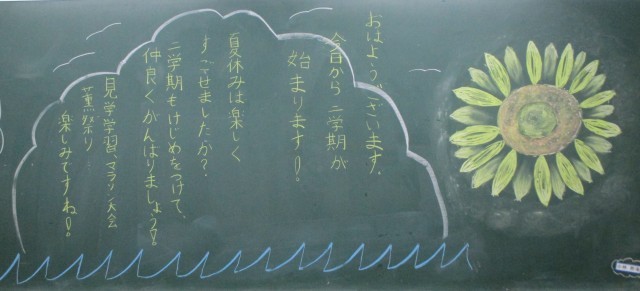 おはようございます。
今日から二学期が
始まります!!
夏休みは楽しく
すごせましたか?
二学期もけじめをつけて、
仲良くがんばりましょう!!
見学学習、マラソン大会
薫祭り
楽しみですね!!